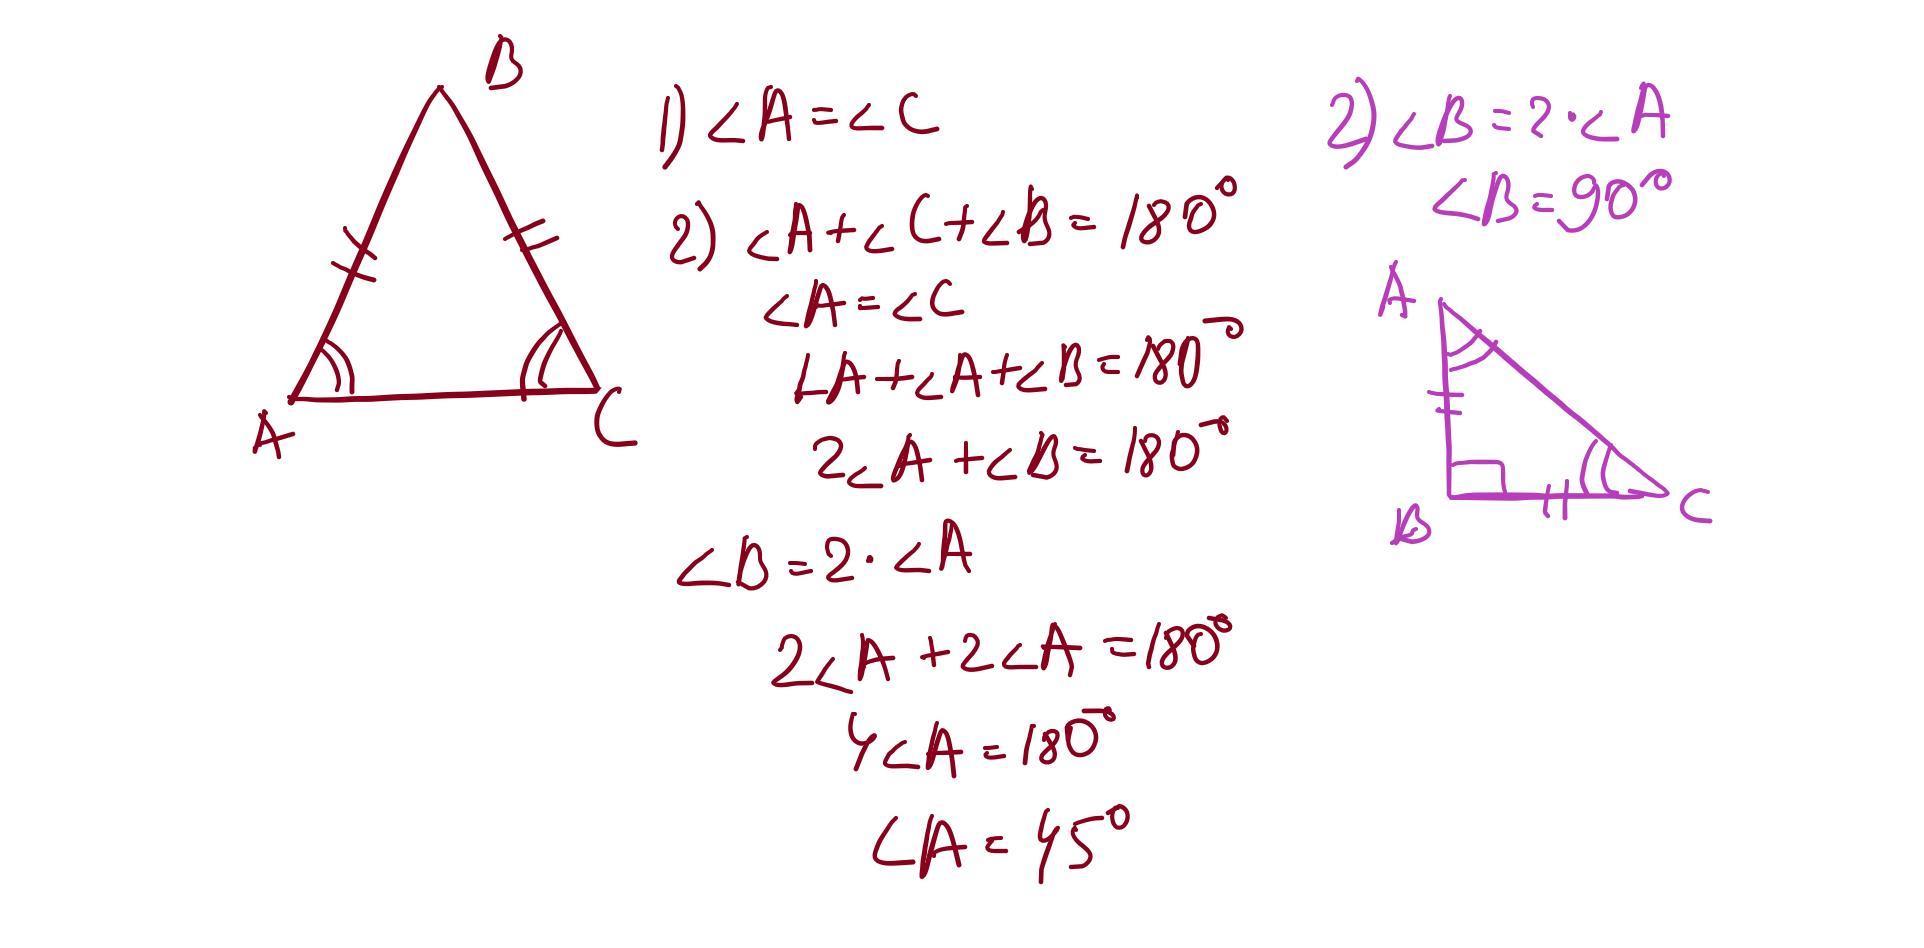 B
A
C
1) ∠A = ∠C
2) ∠A + ∠C + ∠B = 180°
∠A = ∠C
∠A + ∠A + ∠B = 180°
2∠A + ∠B = 180°
∠B = 2 · ∠A
2∠A + 2∠A = 180°
4∠A = 180°
∠A = 45°
2) ∠B = 2 · ∠A
∠B = 90°
A
B
C